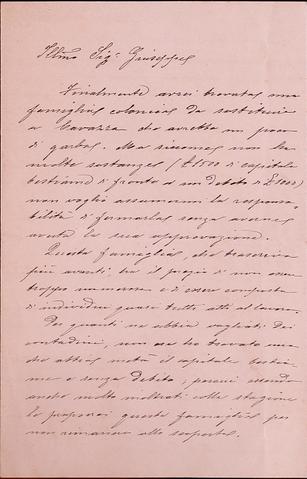 Illmo Sigr Giuseppe
Finalmente avrei trovata una
famiglia colonica da sostituire
a Cavazza che avrebbe un poco
di garbo. Ma siccome non ha
molte sostanze (£1500 di capitale
bestiame di fronte a un debito di £1000)
non voglio assumermi la responsa-
bilità di fermarla senza averne
avuta la sua approvazione.
Questa famiglia, che trascrivo
più avanti, ha il pregio di non essere
troppo numerosa e di essere composta
di individui quasi tutti atti al lavoro.
Per quanti ne abbia vagliati dei
contadini, non ne ho trovato uno
che abbia metà il capitale bestia-
me e senza debito, perciò essendo
anche molto inoltrati colla stagione
le proporrei questa famiglia per
non rimanere allo scoperto.